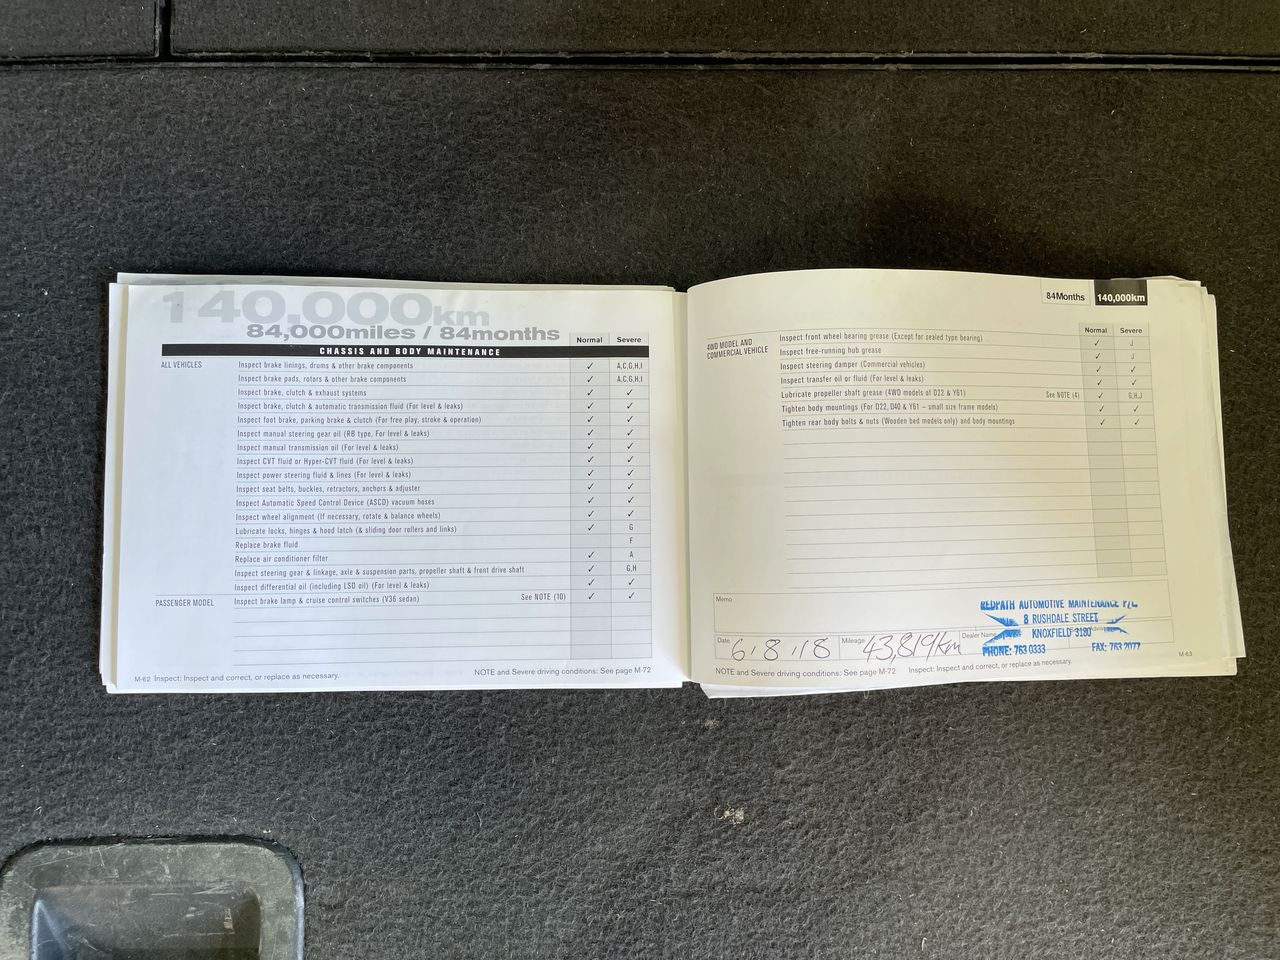 140,000km
84,000miles / 84months
Normal Severe
CHASSIS AND BODY MAINTENANCE
ALL VEHICLES Inspect brake linings, drums & other brake components ✓ A,C,G,H,I
Inspect brake pads, rotors & other brake components ✓ A,C,G,H,I
Inspect brake, clutch & exhaust systems ✓ ✓
Inspect brake, clutch & automatic transmission fluid (For level & leaks) ✓ ✓
Inspect foot brake, parking brake & clutch (For free play, stroke & operation) ✓ ✓
Inspect manual steering gear oil (RB type, For level & leaks) ✓ ✓
Inspect manual transmission oil (For level & leaks) ✓ ✓
Inspect CVT fluid or Hyper-CVT fluid (For level & leaks) ✓ ✓
Inspect power steering fluid & lines (For level & leaks) ✓ ✓
Inspect seat belts, buckles, retractors, anchors & adjuster ✓ ✓
Inspect Automatic Speed Control Device (ASCD) vacuum hoses ✓ ✓
Inspect wheel alignment (If necessary, rotate & balance wheels) ✓ ✓
Lubricate locks, hinges & hood latch (& sliding door rollers and links) ✓ G
Replace brake fluid F
Replace air conditioner filter ✓ A
Inspect steering gear & linkage, axle & suspension parts, propeller shaft & front drive shaft ✓ G,H
Inspect differential oil (including LSD oil) (For level & leaks) ✓ ✓
PASSENGER MODEL Inspect brake lamp & cruise control switches (V36 sedan) See NOTE (10) ✓ ✓
M-62 Inspect: Inspect and correct, or replace as necessary. NOTE and Severe driving conditions: See page M-72
84Months 140,000km
Normal Severe
4WD MODEL AND
COMMERCIAL VEHICLE
Inspect front wheel bearing grease (Except for sealed type bearing) ✓ J
Inspect free-running hub grease ✓ J
Inspect steering damper (Commercial vehicles) ✓ ✓
Inspect transfer oil or fluid (For level & leaks) ✓ ✓
Lubricate propeller shaft grease (4WD models of D22 & Y61) See NOTE (4) ✓ G,H,J
Tighten body mountings (For D22, D40 & Y61 – small size frame models) ✓ ✓
Tighten rear body bolts & nuts (Wooden bed models only) and body mountings ✓ ✓
Memo
REDPATH AUTOMOTIVE MAINTENANCE P/L
8 RUSHDALE STREET
KNOXFIELD 3180
PHONE: 763 0333 FAX: 763 2077
Date 6.8.18 Mileage 43,819km Dealer Name
NOTE and Severe driving conditions: See page M-72 Inspect: Inspect and correct, or replace as necessary. M-63